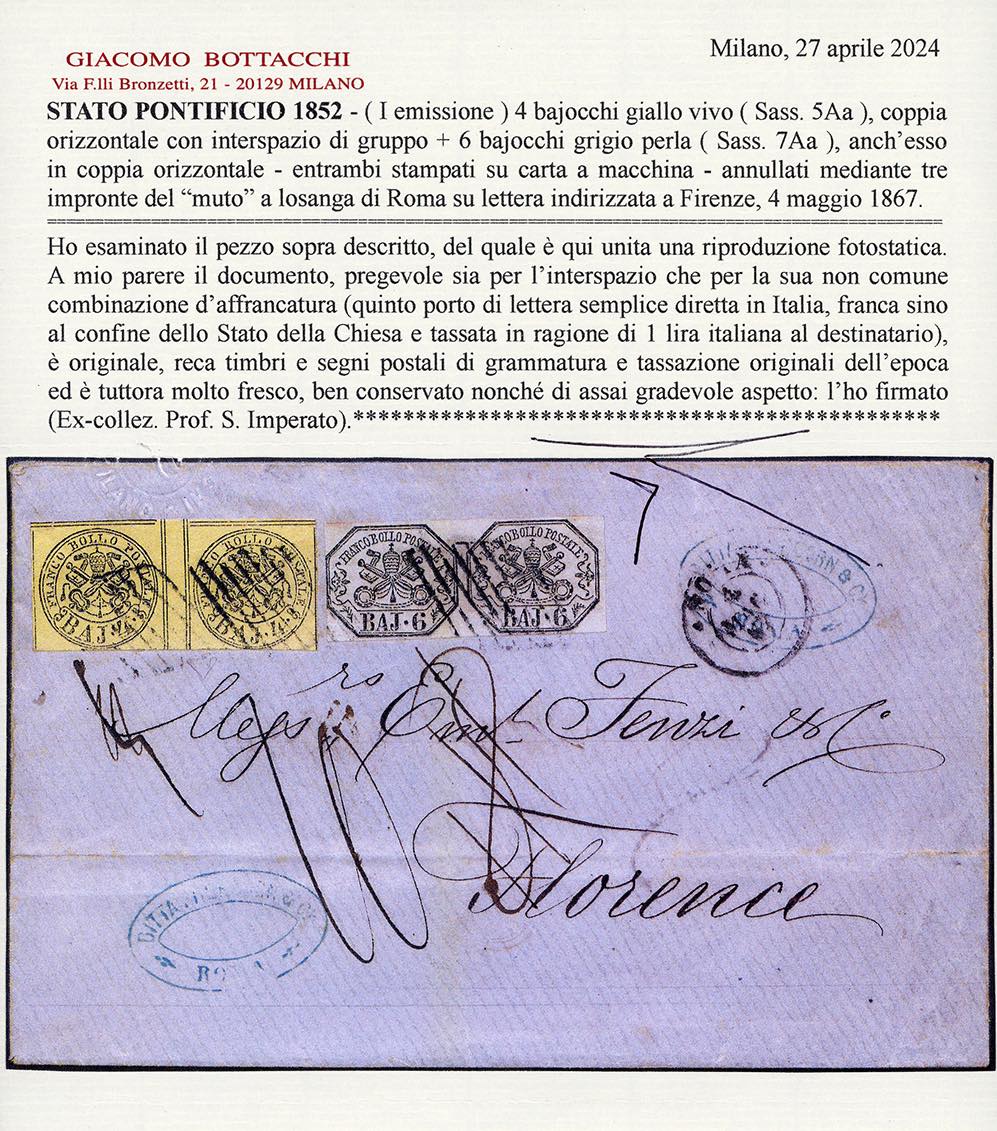 GIACOMO BOTTACCHI
Via F.lli Bronzetti, 21 - 20129 MILANO
Milano, 27 aprile 2024
STATO PONTIFICIO 1852 - ( I emissione ) 4 bajocchi giallo vivo ( Sass. 5Aa ), coppia
orizzontale con interspazio di gruppo + 6 bajocchi grigio perla ( Sass. 7Aa ), anch’esso
in coppia orizzontale - entrambi stampati su carta a macchina - annullati mediante tre
impronte del “muto” a losanga di Roma su lettera indirizzata a Firenze, 4 maggio 1867.
Ho esaminato il pezzo sopra descritto, del quale è qui unita una riproduzione fotostatica.
A mio parere il documento, pregevole sia per l’interspazio che per la sua non comune
combinazione d’affrancatura (quinto porto di lettera semplice diretta in Italia, franca sino
al confine dello Stato della Chiesa e tassata in ragione di 1 lira italiana al destinatario),
è originale, reca timbri e segni postali di grammatura e tassazione originali dell’epoca
ed è tuttora molto fresco, ben conservato nonché di assai gradevole aspetto: l’ho firmato
(Ex-collez. Prof. S. Imperato).***********************************************
FRANCO BOLLO POSTALE BAJ. 4
FRANCO BOLLO POSTALE BAJ. 4
FRANCO BOLLO POSTALE BAJ·6
FRANCO BOLLO POSTALE BAJ·6
& Cº
Megs.rs Em.l Fenzi & Cº
Florence
DITTA & Cº
ROMA